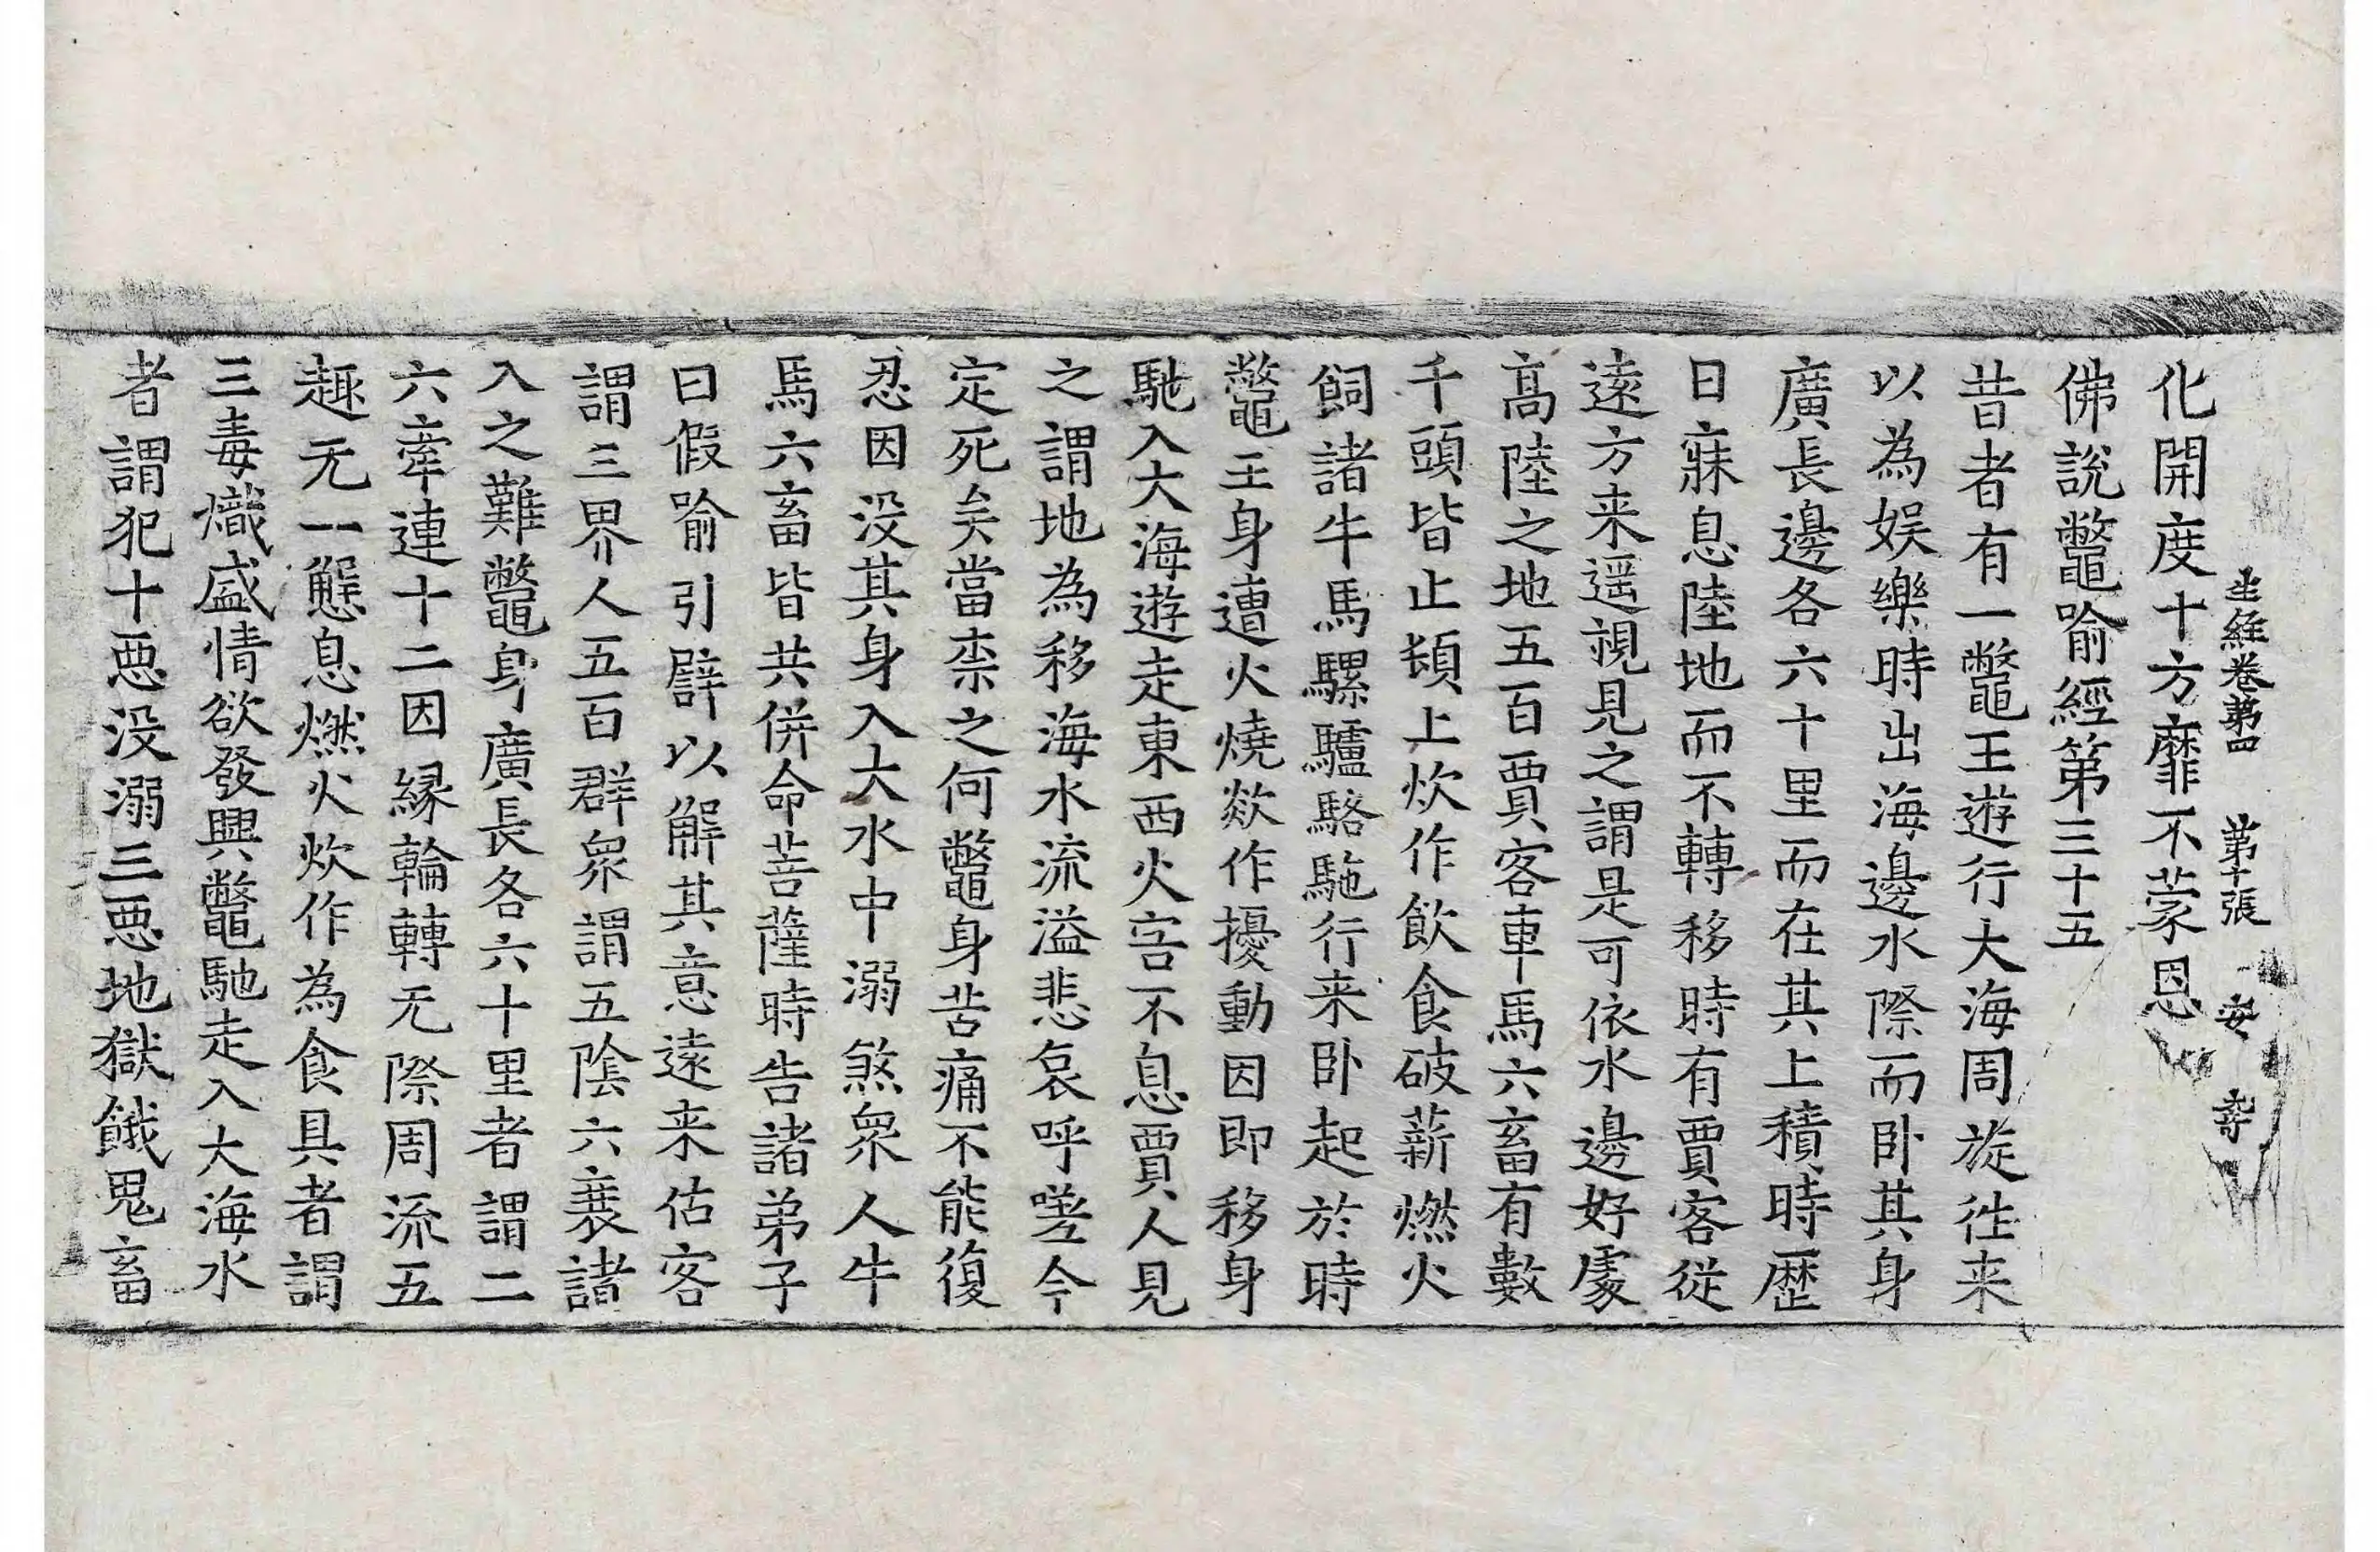 生經卷第四 第十張 安
化開度十方靡不蒙恩
佛說鼈喻經第三十五
昔者有一鼈王遊行大海周旋往来
以為娱樂時出海邊水際而卧其身
廣長邊各六十里而在其上積時歷
日寐息陸地而不轉移時有賈客從
遠方来遥視見之謂是可依水邊好處
高陸之地五百賈客車馬六畜有數
千頭皆止頓上炊作飲食破薪燃火
飼諸牛馬騾驢駱駞行来卧起於時
鼈王身遭火燒焱作擾動因即移身
馳入大海遊走東西火害不息賈人見
之謂地為移海水流溢悲哀呼嗟今
定死矣當柰之何鼈身苦痛不能復
忍因没其身入大水中溺煞衆人牛
馬六畜皆共併命菩薩時告諸弟子
曰假喻引譬以解其意遠来估客
謂三界人五百群衆謂五陰六衰諸
入之難鼈身廣長各六十里者謂二
六牽連十二因緣輪轉无際周流五
趣无一懈息燃火炊作為食具者謂
三毒熾盛情欲發興鼈馳走入大海水
者謂犯十惡没溺三惡地獄餓鬼畜